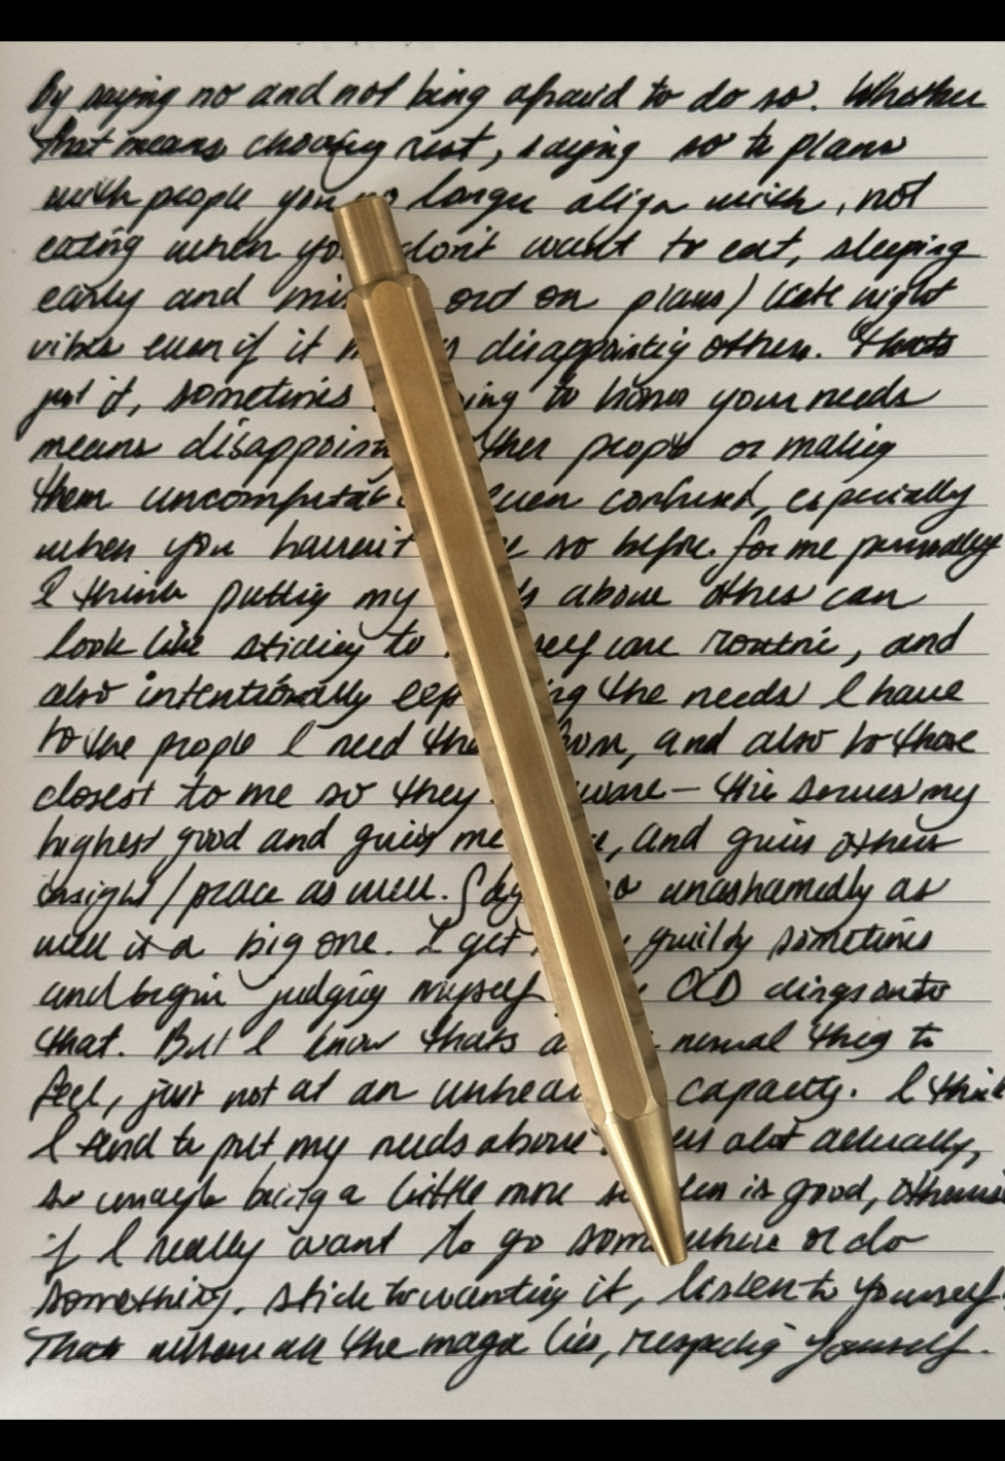 By saying no and not being afraid to do so. Whether
that means choosing rest, saying so to plans
with people you no longer align with, not
eating when you don't want to eat, sleeping
early and out on plans / late night
vibes even if it disappointig others. Thats
just it, sometimes to honor your needs
means disappoin other people or making
them uncomfortab even confused, especially
when you haven't so before. for me personally
I think puttig my above others can
look like sticking to self care routine, and
also intentionally exp ing the needs I have
to the people I need the from, and also to those
closest to me so they aware – this serves my
highest good and gives me , and gives others
insight / peace as well. Say no unashamedly as
well is a big one. I get guilty sometimes
and begin judging myself OCD clings onto
that. But I know thats a normal thing to
feel, just not at an unhea capacity. I think
I tend to put my needs above alot actually,
so maybe being a little more is good, otherwise
if I really want to go somewhere or do
something. stick to wanting it, listen to yourself.
That where all the magic lies, respectig yourself.